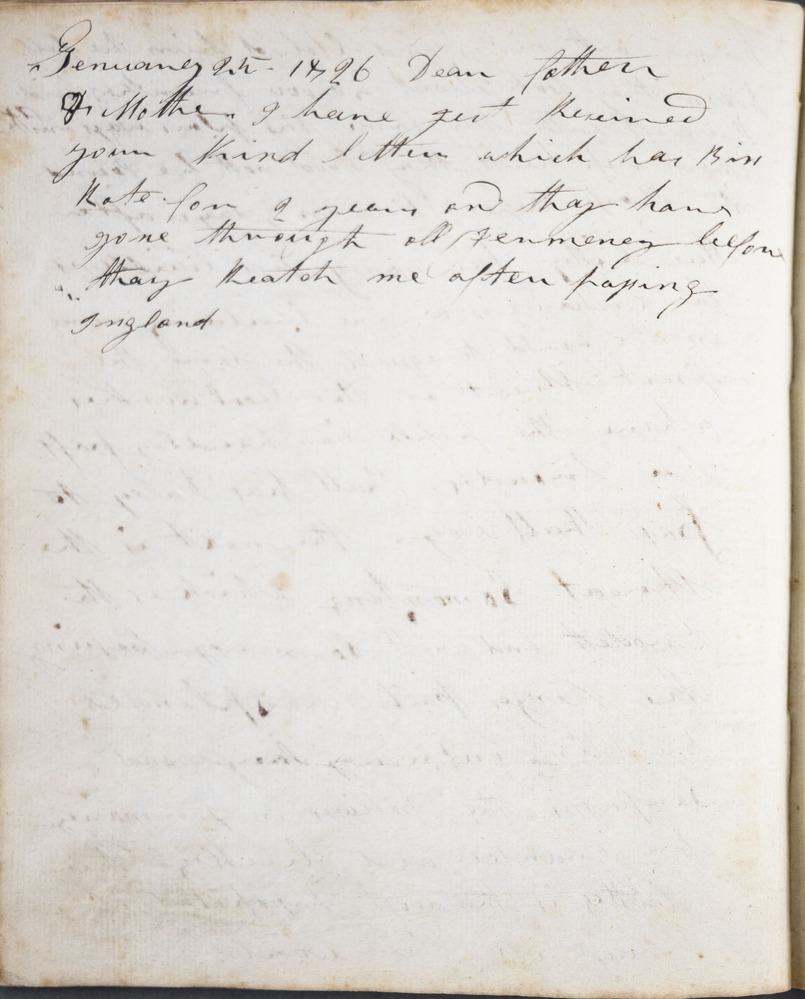 Genuaney 25th - 1826 Dear father
& Mother I have gest Reseived
your Kind letters which has Bin
Rote for 2 years and thay have
gone through all Jenmeney before
thay Reatch me after passing
England